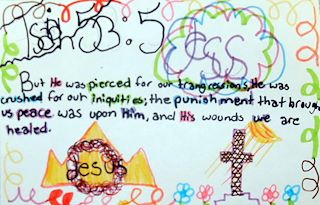 Isaiah 53:5
Jesus
But He was pierced for our transgressions, He was
crushed for our iniquities; the punishment that broug
us peace was upon Him, and His wounds we are
healed.
Jesus